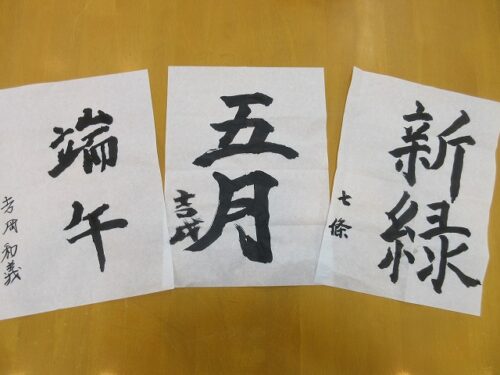 新緑
七條
五月
吉成
端午
吉岡和義